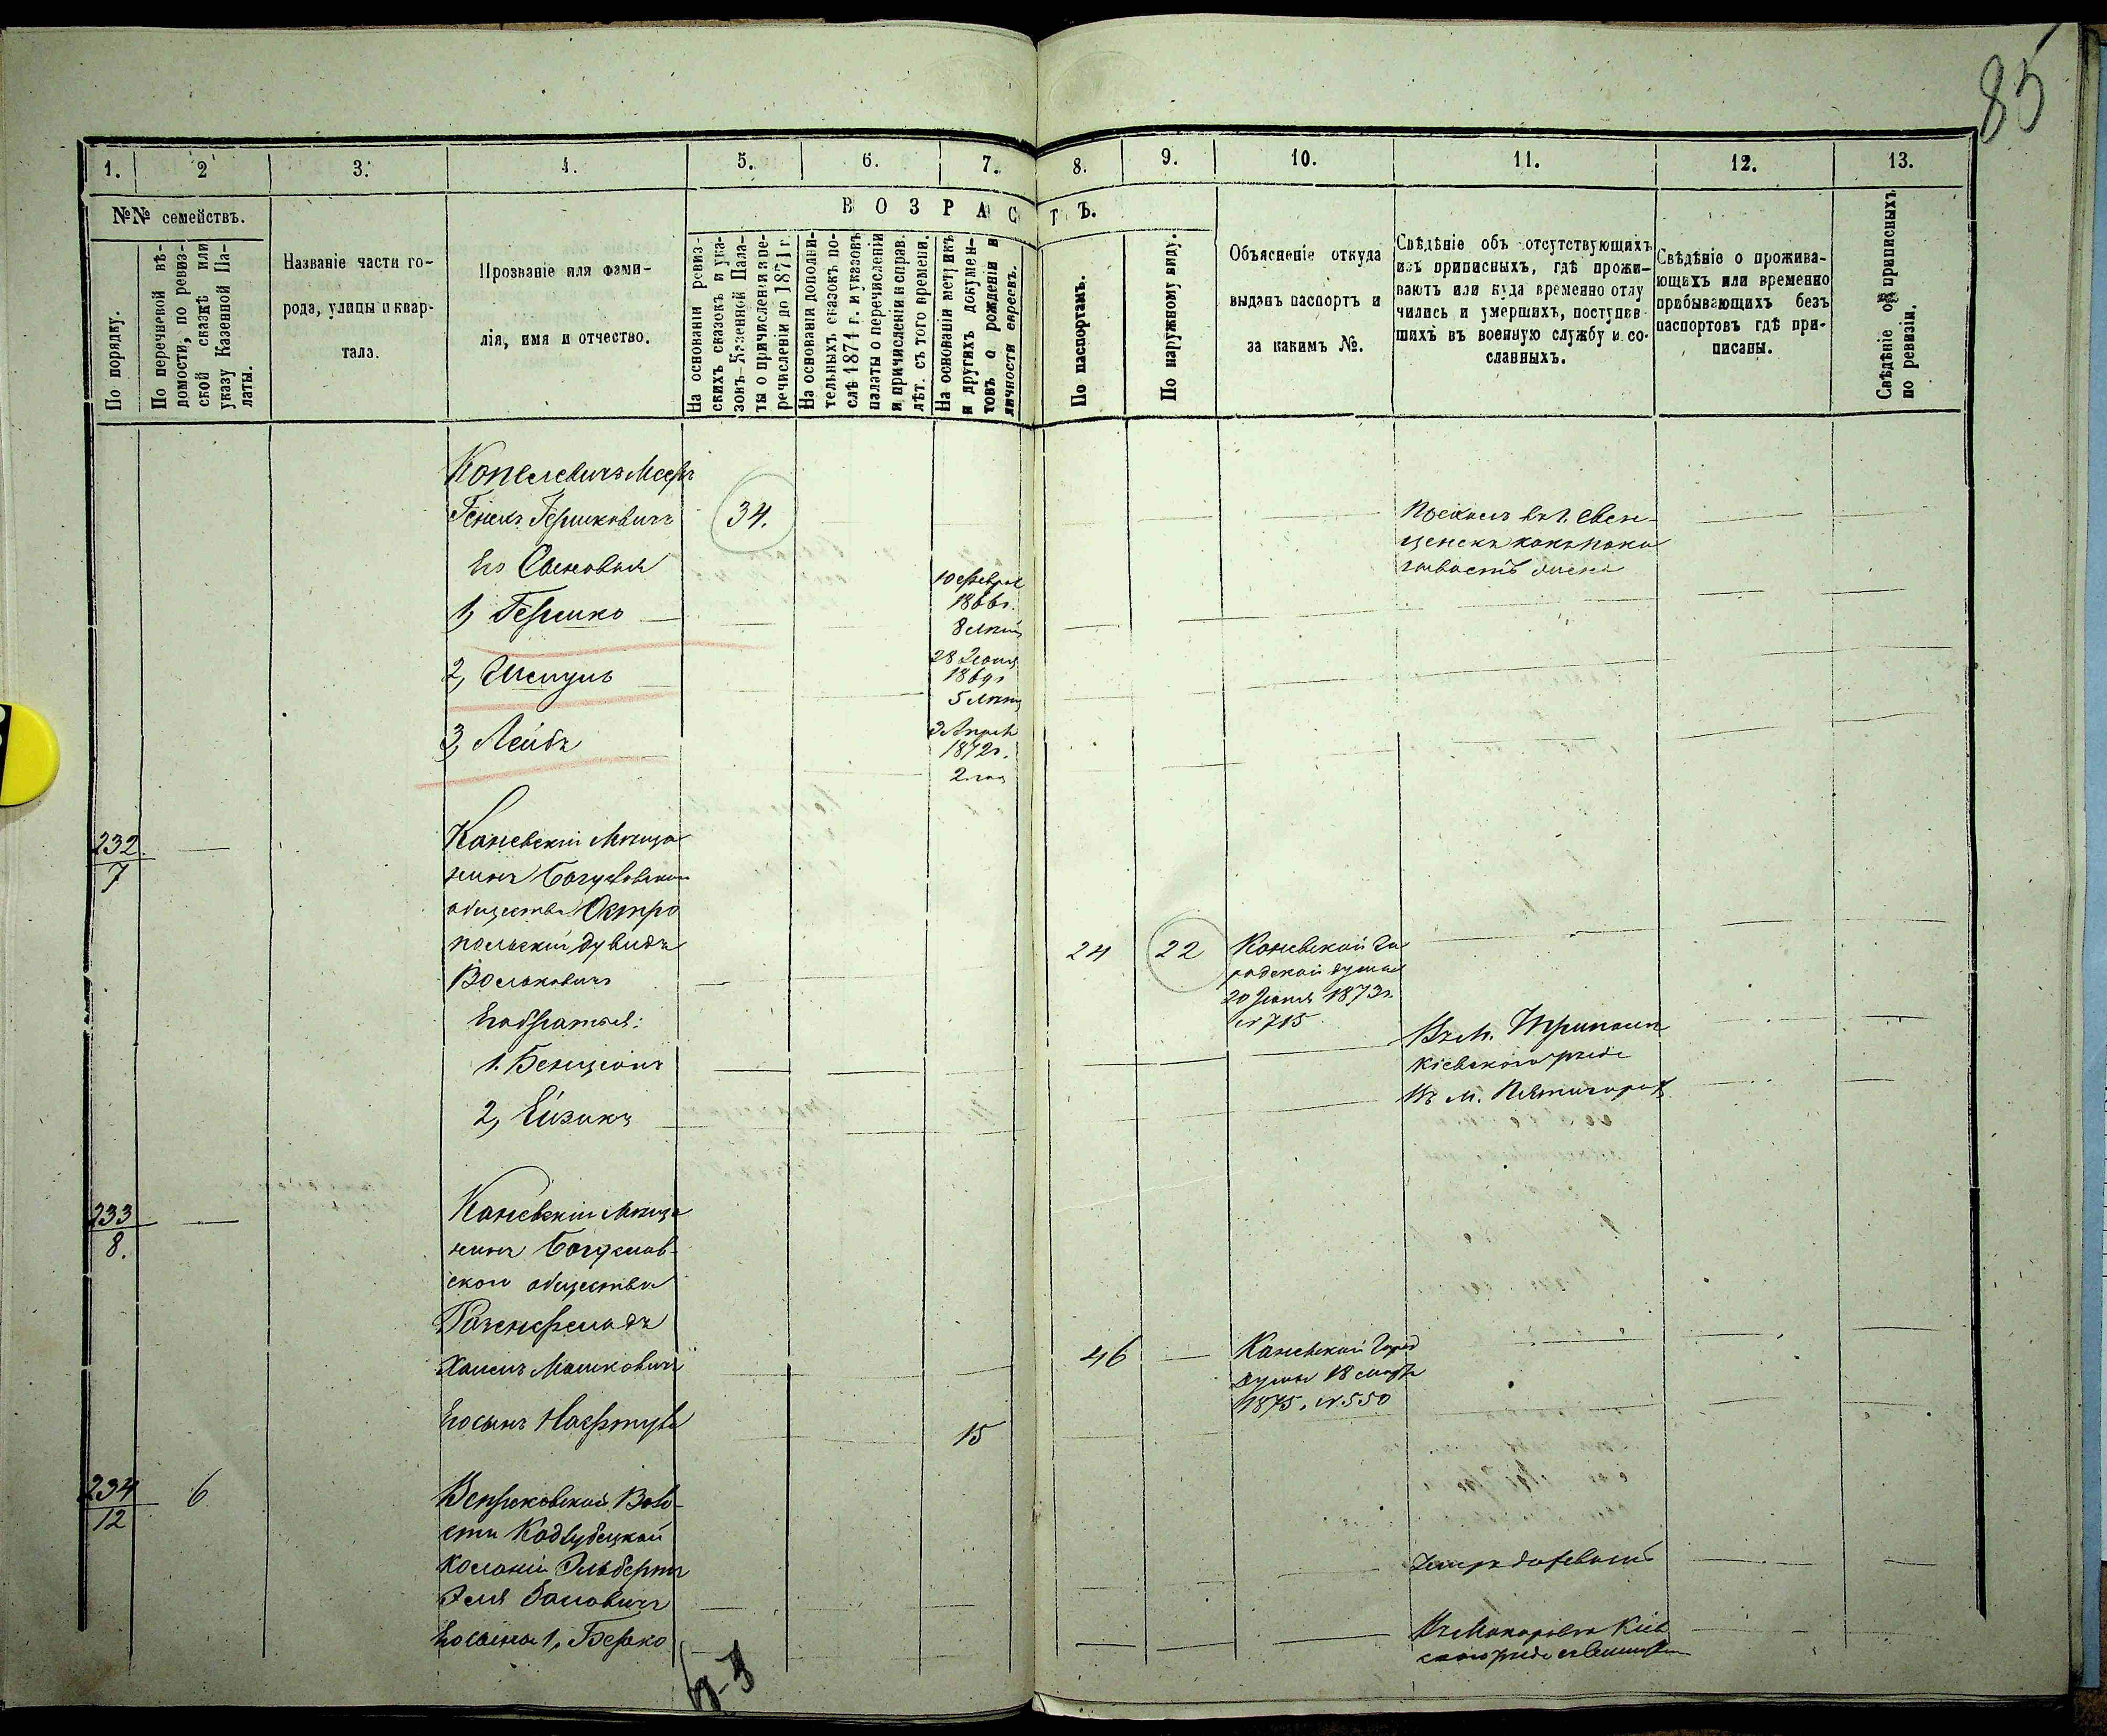 85
1. 2 3. 4. 5. 6. 7. 8. 9. 10. 11. 12. 13.
№№ семействъ.
ВОЗРАСТЪ.
По порядку.
По перечневой вѣ-
домости, по ревиз-
ской сказкѣ или
указу Казенной Па-
латы.
Названіе части го-
рода, улицы и квар-
тала.
Прозваніе или фами-
лія, имя и отчество.
На основаніи ревиз-
скихъ сказокъ и ука-
зовъ Казенной Пала-
ты о причисленіи и пе-
речисленіи до 1871 г.
На основаніи дополни-
тельныхъ сказокъ по-
слѣ 1871 г. и указовъ
палаты о перечисленіи
и причисленіи и справ.
лѣт. съ того времени.
На основаніи метрикъ
и другихъ докумен-
товъ о рожденіи и
личности евреевъ.
По паспортамъ.
По наружному виду.
Объясненіе откуда
выданъ паспортъ и
за какимъ №.
Свѣдѣніе объ отсутствующихъ
изъ приписныхъ, гдѣ прожи-
ваютъ или куда временно отлу
чились и умершихъ, поступив-
шихъ въ военную службу и со-
сланныхъ.
Свѣдѣніе о прожива-
ющихъ или временно
прибывающихъ безъ
паспортовъ гдѣ при-
писаны.
Свѣдѣніе объ приписныхъ
по ревизіи.
Копелевичъ Меер
Гершковичъ 34.
Его Сыновья
1, Гершко 10 Феврал
1866 г.
8 лѣтъ
2, Шмуль 28 Іюня
1869 г
5 лѣтъ
3, Лейбъ 3 Апрѣл
1872 г.
2 год
232
7
Каневскій Мѣща
нинъ Богуславскаго
общества Остро
польскій Дувидъ
Вольковичъ
24 22 Каневской Го
родской думы
20 Іюня 1873 г.
№ 715
Его братья:
1. Бенціонъ
Въ м. Триполи
Кіевского уѣзда
2, Ейзикъ
Въ м. Пятигорах
233
8.
Каневскій Мѣща
нинъ Богуслав-
ского общества
Розенфельдъ
Хаимъ Мошковичъ
46 Каневской Город
Думы 18
1875, № 550
Его сынъ 15
234
12
6
Волo-
сти Кодлубецкой
Колоніи Эльбертъ
Его сыны 1, Берко
Въ Макаровѣ Кіев
ского уѣзда